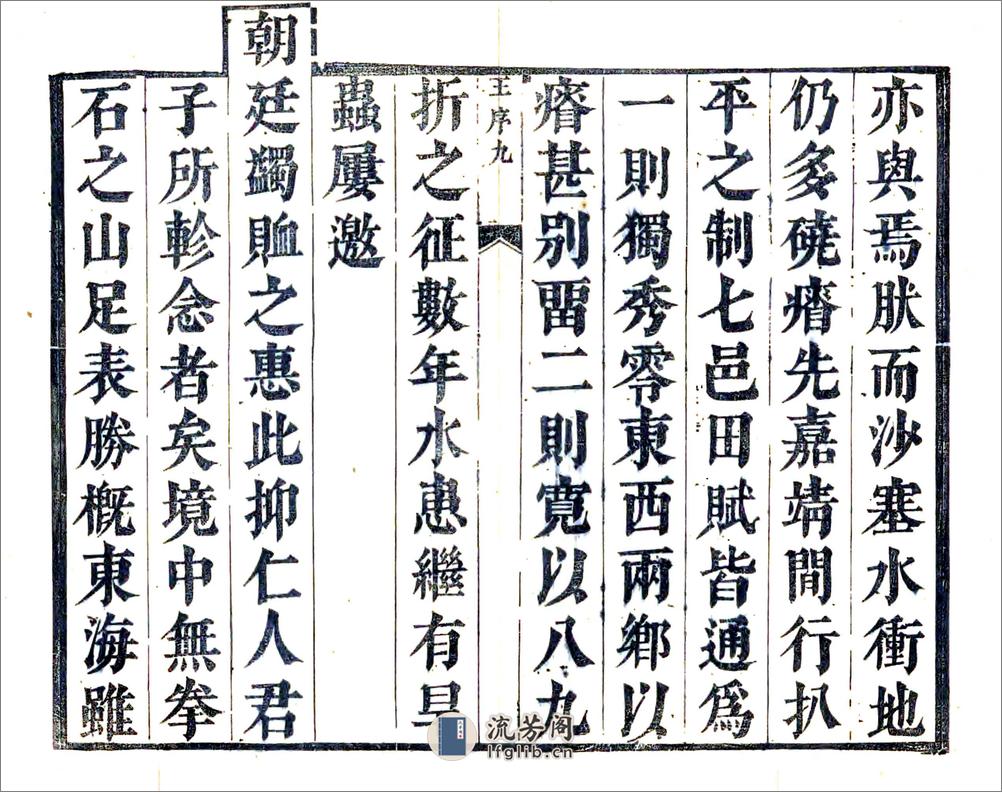 亦與焉肰而沙塞水衝地
仍多磽瘠先嘉靖間行扒
平之制七邑田賦皆通爲
一則獨秀零東西兩鄉以
瘠甚別畱二則寛以八九
王序九
折之征數年水患繼有旱
蟲屢邀
朝廷蠲賉之惠此抑仁人君
子所軫念者矣境中無拳
石之山足表勝槪東海雖
流芳阁
lfglib.cn